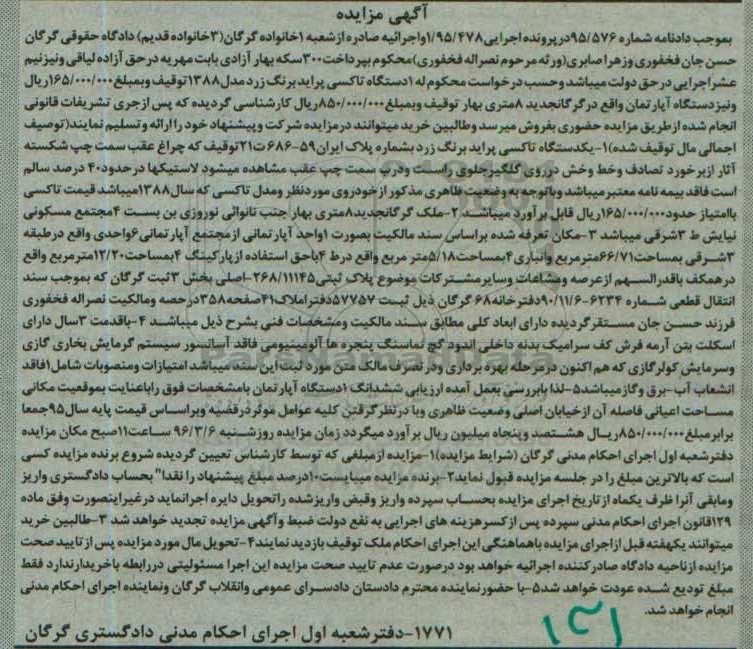 آگهی مزایده
بموجب دادنامه شماره ۹۵/۵۷۶درپرونده اجرایی۱/۹۵/۴۷۸واجرائیه صادره ازشعبه ۱خانواده گرگان(۳خانواده قدیم) دادگاه حقوقی گرگان
حسن جان فخفوری وزهراصابری(ورثه مرحوم نصراله فخفوری)محکوم بپرداخت۳۰۰سکه بهار آزادی بابت مهریه درحق آزاده لیاقی ونیزنیم
عشراجرایی درحق دولت میباشد وحسب درخواست محکوم له ۱دستگاه تاکسی پراید برنگ زرد مدل۱۳۸۸توقیف وبمبلغ۱۶۵/۰۰۰/۰۰۰ریال
ونیزدستگاه آپارتمان واقع درگرگانجدید ۸متری بهار توقیف وبمبلغ۸۵۰/۰۰۰/۰۰۰ریال کارشناسی گردیده که پس ازجری تشریفات قانونی
انجام شده ازطریق مزایده حضوری بفروش میرسد وطالبین خرید میتوانند درمزایده شرکت وپیشنهاد خود را ارائه وتسلیم نمایند(توصیف
اجمالی مال توقیف شده)۱-یکدستگاه تاکسی پراید برنگ زرد بشماره پلاک ایران۵۹-۶۸۶ت۲۱توقیف که چراغ عقب سمت چپ شکسته
آثار ازبرخورد تصادف وخط وخش درروی گلگیرجلوی راست ودرب سمت چپ عقب مشاهده میشود لاستیکها درحدود۴۰ درصد سالم
است فاقد بیمه نامه معتبرمیباشد وباتوجه به وضعیت ظاهری مذکور ازخودروی موردنظر ومدل تاکسی که سال۱۳۸۸میباشد قیمت تاکسی
باامتیاز حدود۱۶۵/۰۰۰/۰۰۰ریال قابل برآورد میباشد ۲-ملک گرگانجدید۸متری بهار جنب نانوائی نوروزی بن بست ۴مجتمع مسکونی
نیایش ط ۳شرقی میباشد ۳-مکان تعرفه شده براساس سند مالکیت بصورت ۱واحد آپارتمانی ازمجتمع آپارتمانی۶واحدی واقع درطبقه
۳شرقی بمساحت۶۶/۷۱مترمربع وانباری۴بمساحت۵/۱۸متر مربع واقع درط ۴باحق استفاده ازپارکینگ ۴بمساحت۱۲/۲۰مترمربع واقع
درهمکف باقدرالسهم ازعرصه ومشاعات وسایرمشترکات موضوع پلاک ثبتی۲۶۸/۱۱۱۴۵-اصلی بخش ۳ثبت گرگان که بموجب سند
انتقال قطعی شماره ۶۲۳۴-۹۰/۱۱/۶دفترخانه۶۸ گرگان ذیل ثبت ۵۷۷۵۷دفتراملاک۴۱صفحه۳۵۸درحصه ومالکیت نصراله فخفوری
فرزند حسن جان مستقرگردیده دارای ابعاد کلی مطابق سند مالکیت ومشخصات فنی بشرح ذیل میباشد ۴-باقدمت ۳سال دارای
اسکلت بتن آرمه فرش کف سرامیک بدنه داخلی اندود گچ نماسنگ پنجره ها آلومینیومی فاقد آسانسور سیستم گرمایش بخاری گازی
وسرمایش کولرگازی که هم اکنون درمرحله بهره برداری ودرتصرف مالک متن مورد ثبت این سند میباشد امتیازات ومنصوبات شامل۱فاقد
انشعاب آب-برق وگازمیباشد۵-لذا بابررسی بعمل آمده ارزیابی ششدانگ ۱دستگاه آپارتمان بامشخصات فوق راباعنایت بموقعیت مکانی
مساحت اعیانی فاصله آن ازخیابان اصلی وضعیت ظاهری وبا درنظرگرفتن کلیه عوامل موثردرقضیه وبراساس قیمت پایه سال۹۵جمعا
برابرمبلغ۸۵۰/۰۰۰/۰۰۰ریال هشتصد وپنجاه میلیون ریال برآورد میگردد زمان مزایده روزشنبه ۹۶/۳/۶ ساعت۱۱صبح مکان مزایده
دفترشعبه اول اجرای احکام مدنی گرگان (شرایط مزایده)۱-مزایده ازمبلغی که توسط کارشناس تعیین گردیده شروع برنده مزایده کسی
است که بالاترین مبلغ را در جلسه مزایده قبول نماید۲-برنده مزایده میبایست۱۰درصد مبلغ پیشنهاد را نقدا" بحساب دادگستری واریز
ومابقی آنرا ظرف یکماه ازتاریخ اجرای مزایده بحساب سپرده واریز وقبض واریزشده راتحویل دایره اجرانماید درغیراینصورت وفق ماده
۱۲۹قانون اجرای احکام مدنی سپرده پس ازکسرهزینه های اجرایی به نفع دولت ضبط وآگهی مزایده تجدید خواهد شد ۳-طالبین خرید
میتوانند یکهفته قبل ازاجرای مزایده باهماهنگی این اجرای احکام ملک توقیف بازدید نمایند۴-تحویل مال مورد مزایده پس ازتایید صحت
مزایده ازناحیه دادگاه صادرکننده اجرائیه خواهد بود درصورت عدم تایید صحت مزایده این اجرا مسئولیتی دررابطه باخریدارندارد فقط
مبلغ تودیع شده عودت خواهد شد۵-با حضورنماینده محترم دادستان دادسرای عمومی وانقلاب گرگان ونماینده اجرای احکام مدنی
انجام خواهد شد.
۱۷۷۱-دفترشعبه اول اجرای احکام مدنی دادگستری گرگان